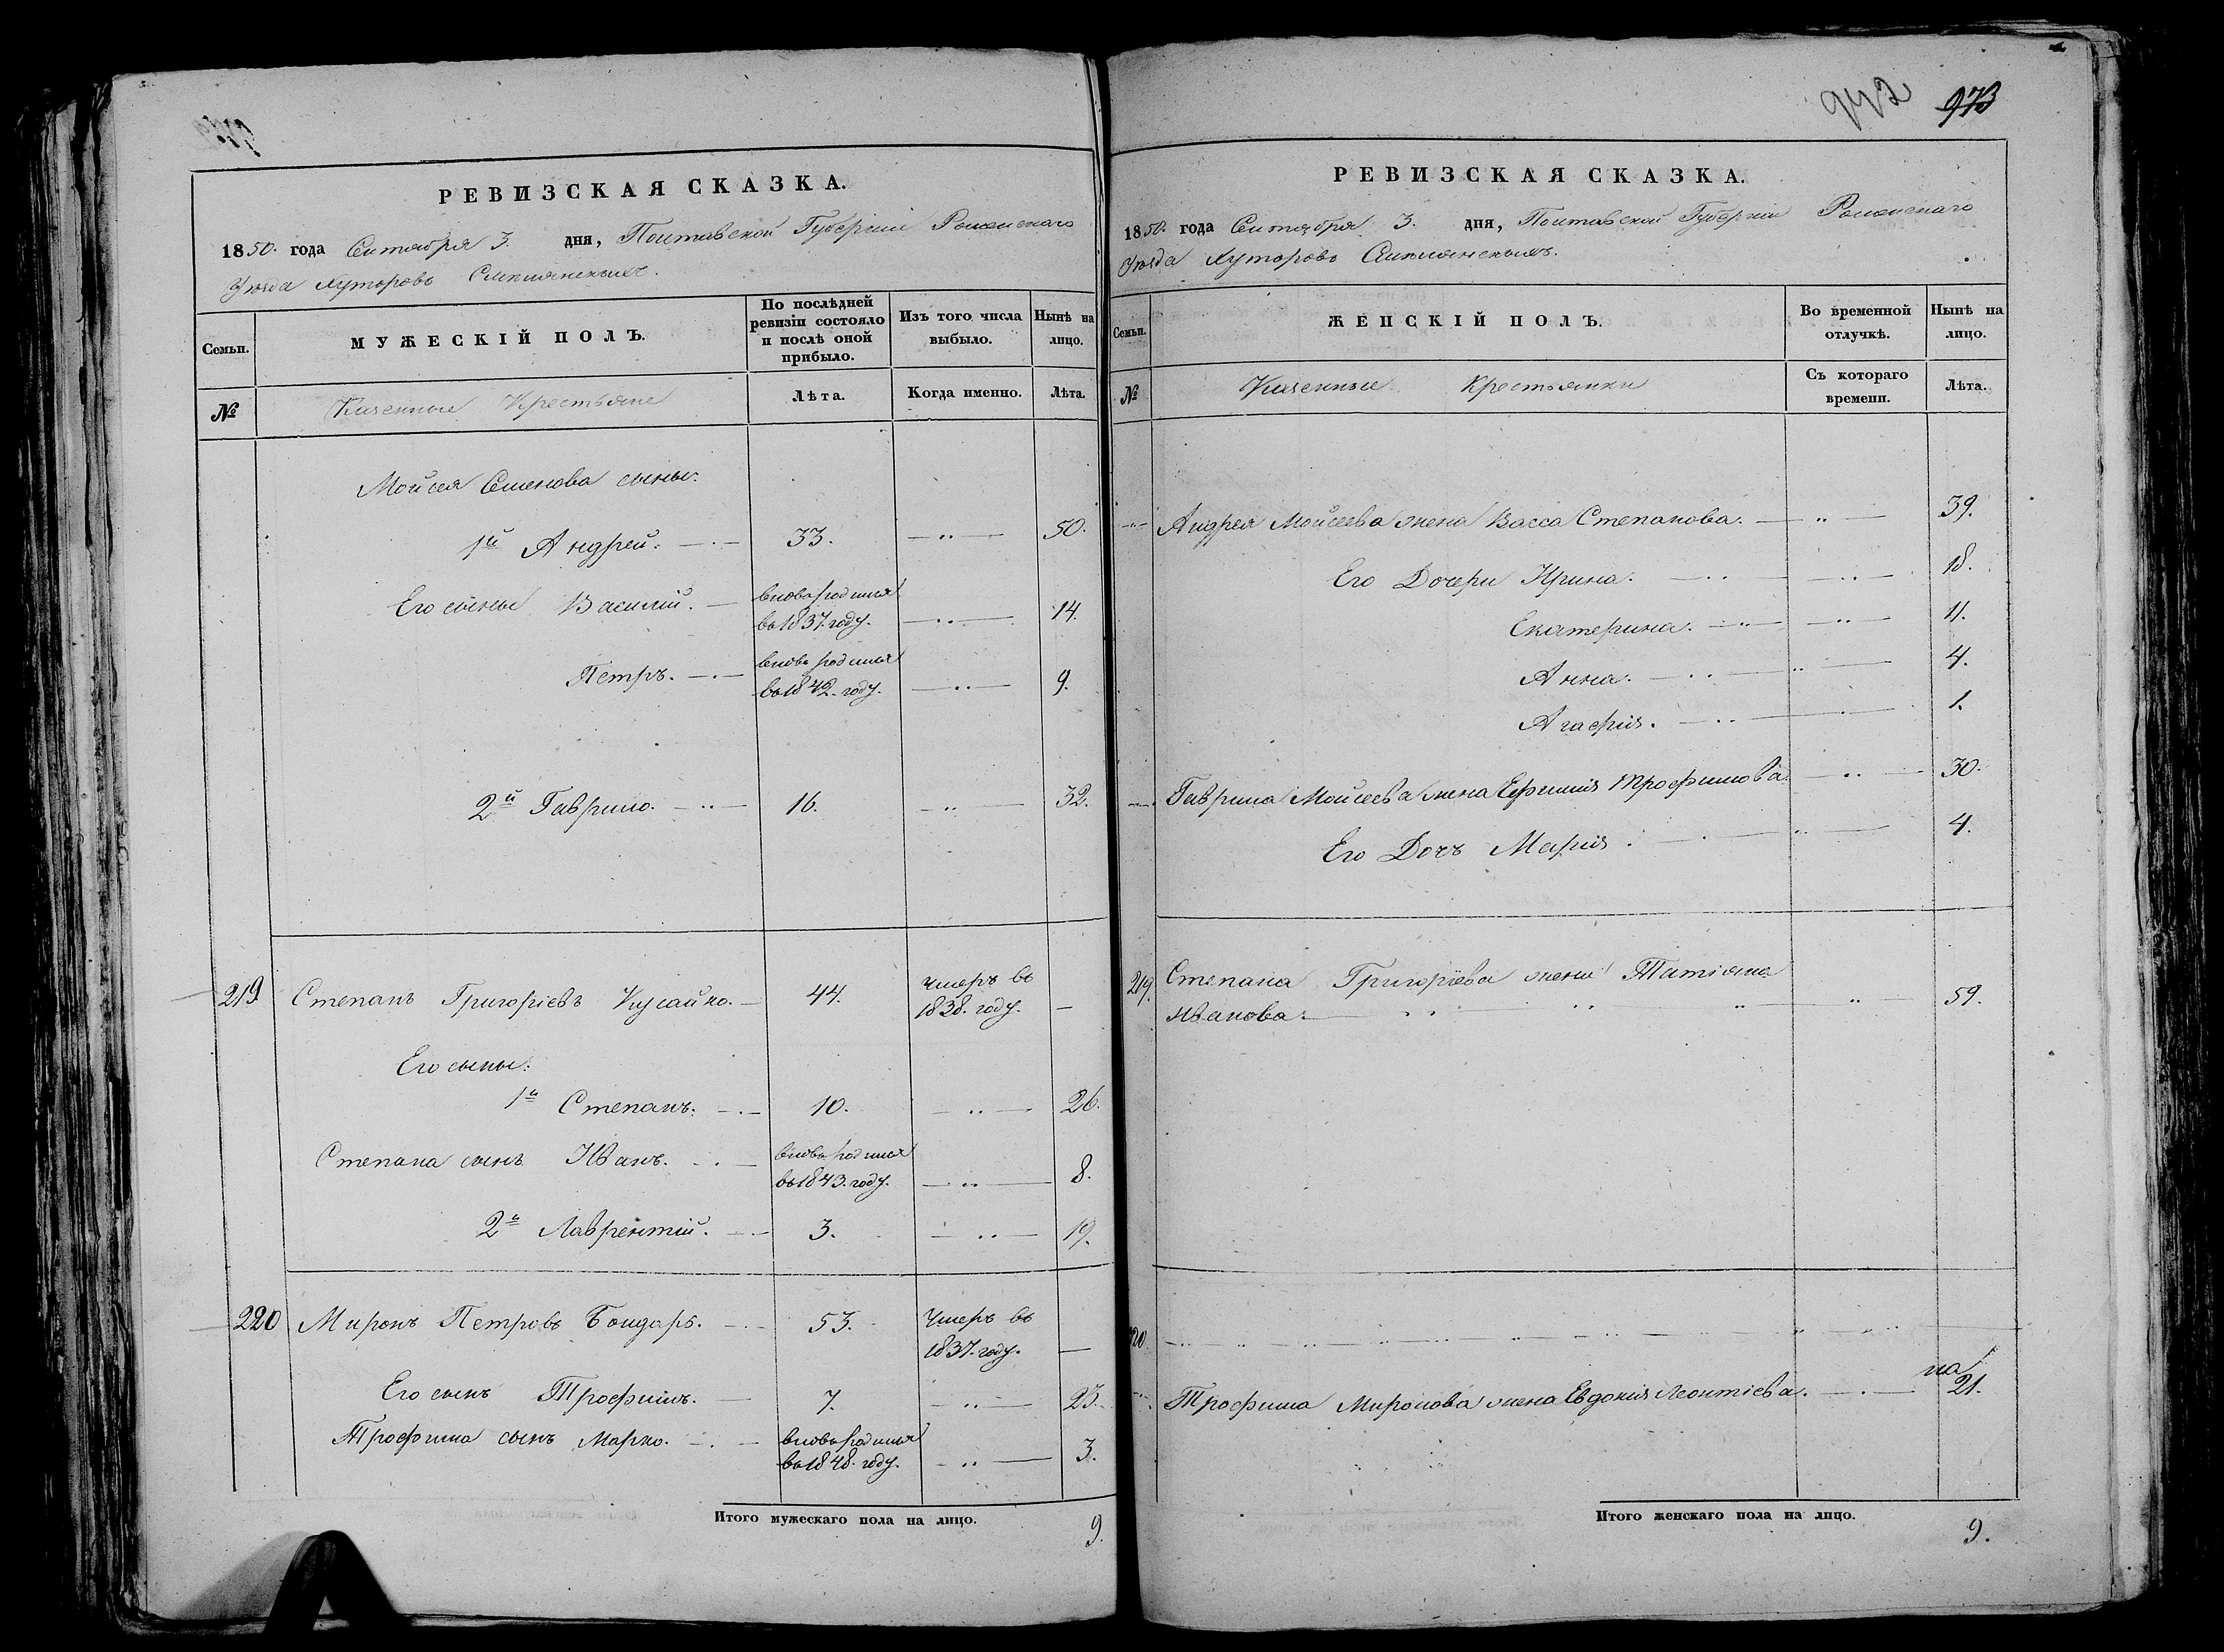 РЕВИЗСКАЯ СКАЗКА.
1850. года Сентября 3. дня, Полтавской Губерніи Роменскаго
Уѣзда Хуторовъ
Семьи.
МУЖЕСКІЙ ПОЛЪ.
По послѣдней ревизіи состояло и послѣ оной прибыло.
Изъ того числа выбыло.
Нынѣ на лицо.
№
Казенные Крестьяне
Лѣта.
Когда именно.
Лѣта.
Мойсея Семенова сыны:
1й Андрей. 33. 50.
Его сыны Василій. вновь родился
въ 1837. году. 14.
Петръ. вновь родился
въ 1842. году. 9.
2й Гаврило. 16. 32.
219. Степанъ Григоріевъ Кусайко. 44. Умеръ въ
1838. году. —
Его сыны:
1й Степанъ. 10. 26.
Степана сынъ Иванъ. вновь родился
въ 1843. году. 8.
2й Лаврентій. 3. 19.
220 Миронъ Петровъ Бондарь. 53. Умеръ въ
1837. году. —
Его сынъ Трофимъ. 7. 23.
Трофима сынъ Марко. вновь родился
въ 1848. году. 3.
Итого мужескаго пола на лицо. 9.
942 973
РЕВИЗСКАЯ СКАЗКА.
1850. года Сентября 3. дня, Полтавской Губерніи Роменскаго
Уѣзда Хуторовъ
Семьи.
ЖЕНСКІЙ ПОЛЪ.
Во временной отлучкѣ.
Нынѣ на лицо.
№
Казенные Крестьянки
Съ котораго времени.
Лѣта.
Андрея Мойсеева жена Васса Степанова. 39.
Его Дочери Ирина. 18.
Екатерина. 11.
Анна. 4.
Агафія. 1.
Гаврила Мойсеева жена Ефимія Трофимова. 30.
Его Дочь Марія. 4.
219. Степана Григоріева жена Татіяна
Иванова. 59.
220.
Трофима Миронова жена Евдокія Леонтіева. 21.
Итого женскаго пола на лицо. 9.